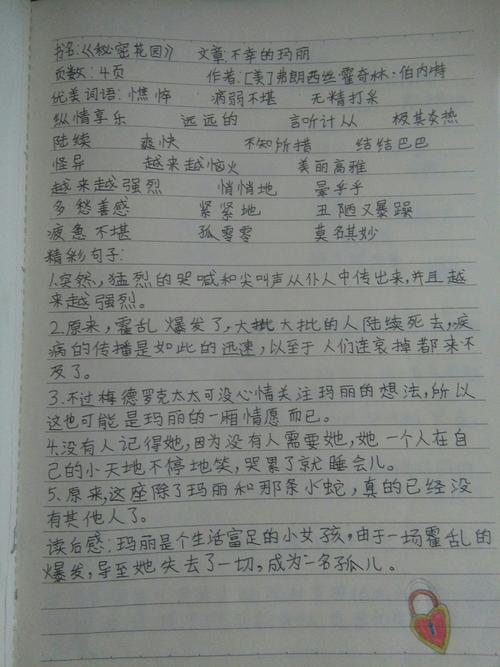 书名:《秘密花园》 文章:不幸的玛丽
页数:4页 作者:[美]弗朗西丝·霍奇森·伯内特
优美词语:憔悴 病弱不堪 无精打采
纵情享乐 远远的 言听计从 极其炎热
陆续 爽快 不知所措 结结巴巴
怪异 越来越恼火 美丽高雅
越来越强烈 悄悄地 晕乎乎
多愁善感 紧紧地 丑陋又暴躁
疲惫不堪 孤零零 莫名其妙
精彩句子:
1.突然,猛烈的哭喊和尖叫声从仆人中传出来,并且越
来越强烈。
2.原来,霍乱爆发了,大批大批的人陆续死去,疾
病的传播是如此的迅速,以至于人们连哀掉都来不
及了。
3.不过梅德罗克太太可没心情关注玛丽的想法,所以
这也可能是玛丽的一厢情愿而已。
4.没有人记得她,因为没有人需要她,她一个人在自
己的小天地不停地笑,哭累了就睡会儿。
5.原来,这座除了玛丽和那条小蛇,真的已经没
有其他人了。
读后感:玛丽是个生活富足的小女孩,由于一场霍乱的
爆发,导至她失去了一切,成为一名孤儿。